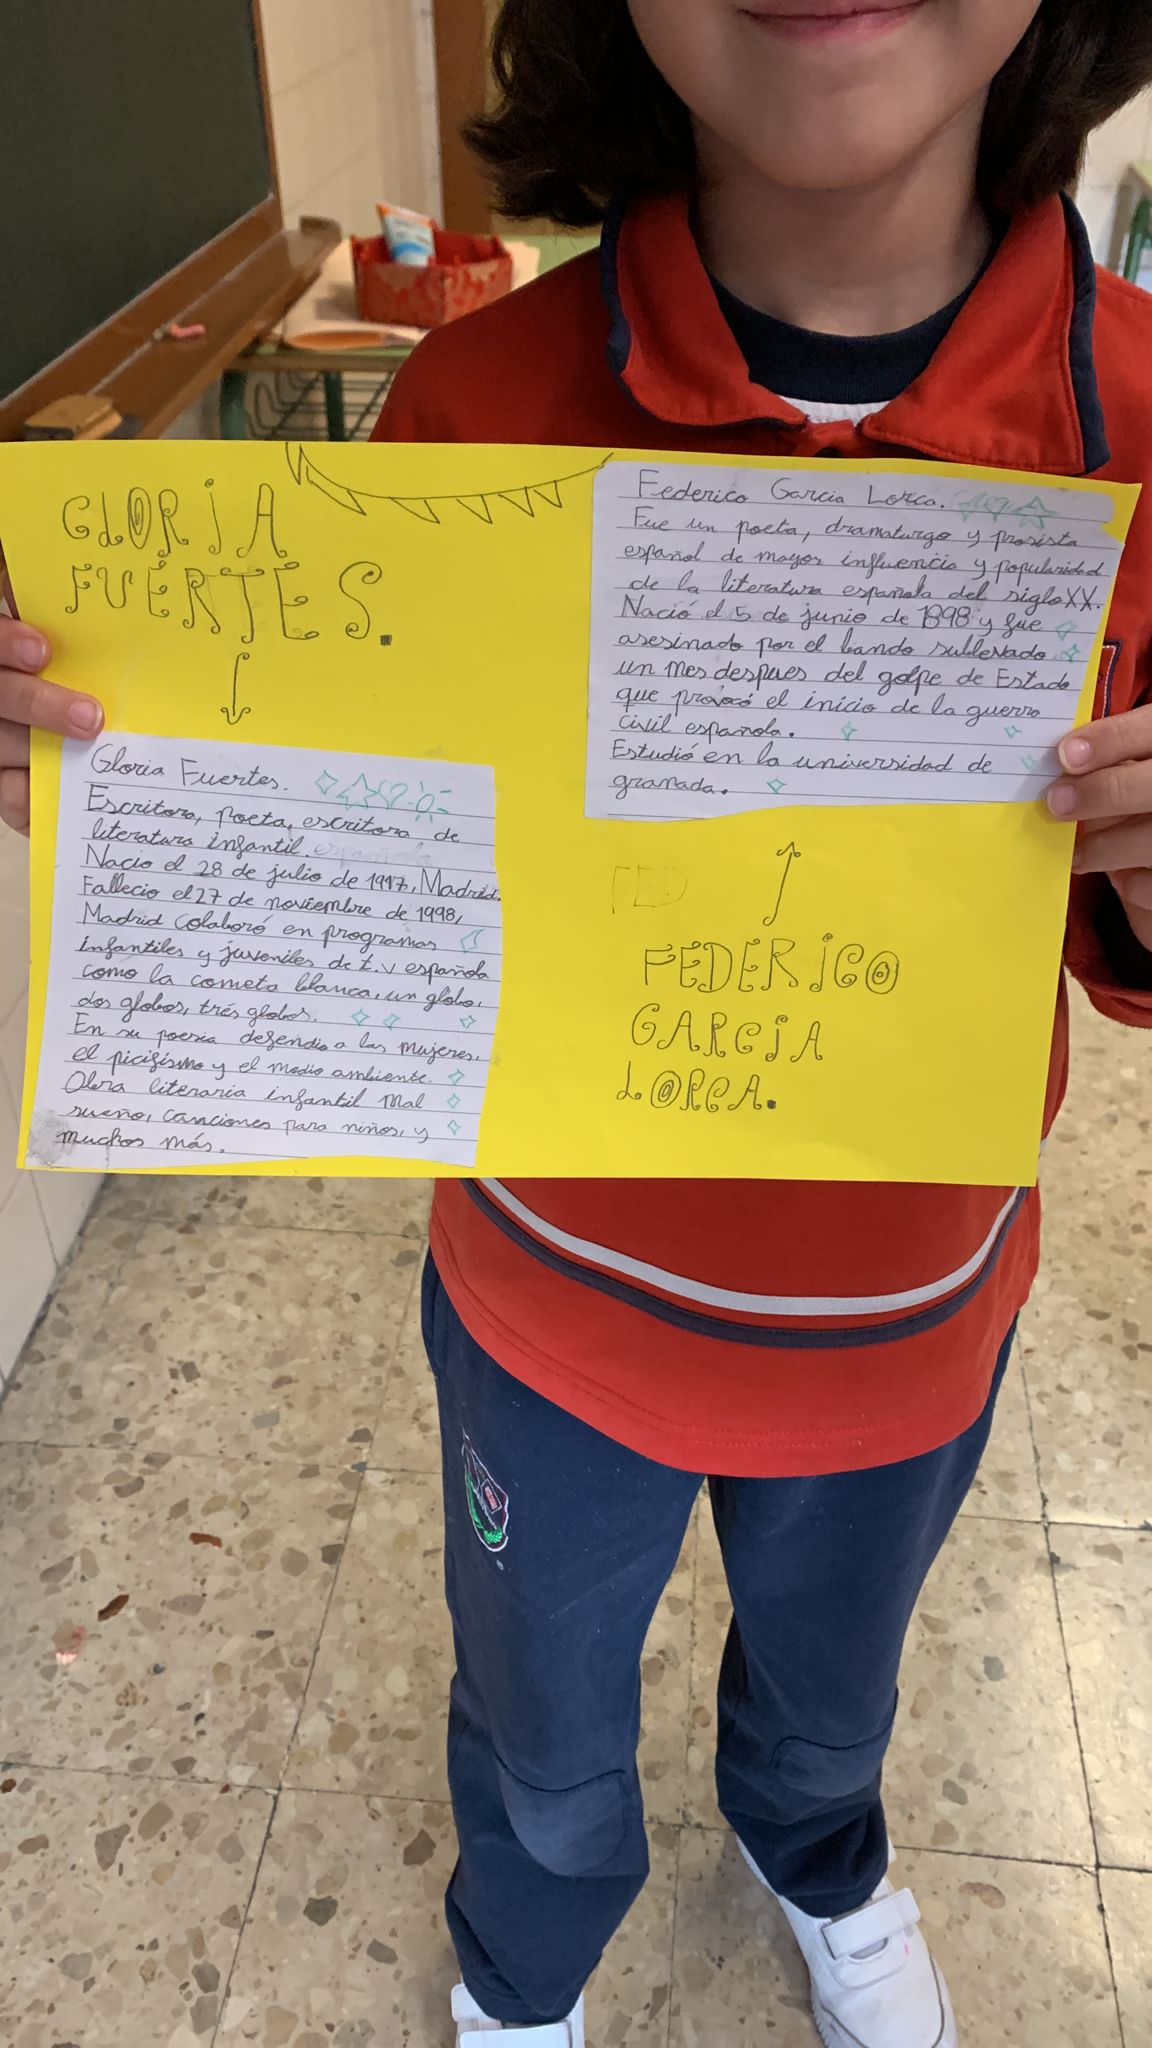 GLORIA
FUERTES.
Gloria Fuertes.
Escritora, poeta, escritora de
literatura infantil. española
Nacio el 28 de julio de 1917, Madrid.
Fallecio el 27 de noviembre de 1998,
Madrid colaboró en programas
infantiles y juveniles de t.v española
como la cometa blanca, un globo,
dos globos, trés globos.
En su poesia defendio a las mujeres,
el picifismo y el medio ambiente.
Obra literaria infantil Mal
sueño, canciones para niños, y
muchos más.
Federico Garcia Lorca.
Fue un poeta, dramaturgo y prosista
español de mayor influencia y popularidad
de la literatura española del siglo XX.
Nació el 5 de junio de 1898 y fue
asesinado por el bando sublevado
un mes despues del golpe de Estado
que provocó el inicio de la guerra
civil española.
Estudió en la universidad de
granada.
FED
FEDERICO
GARCIA
LORCA.